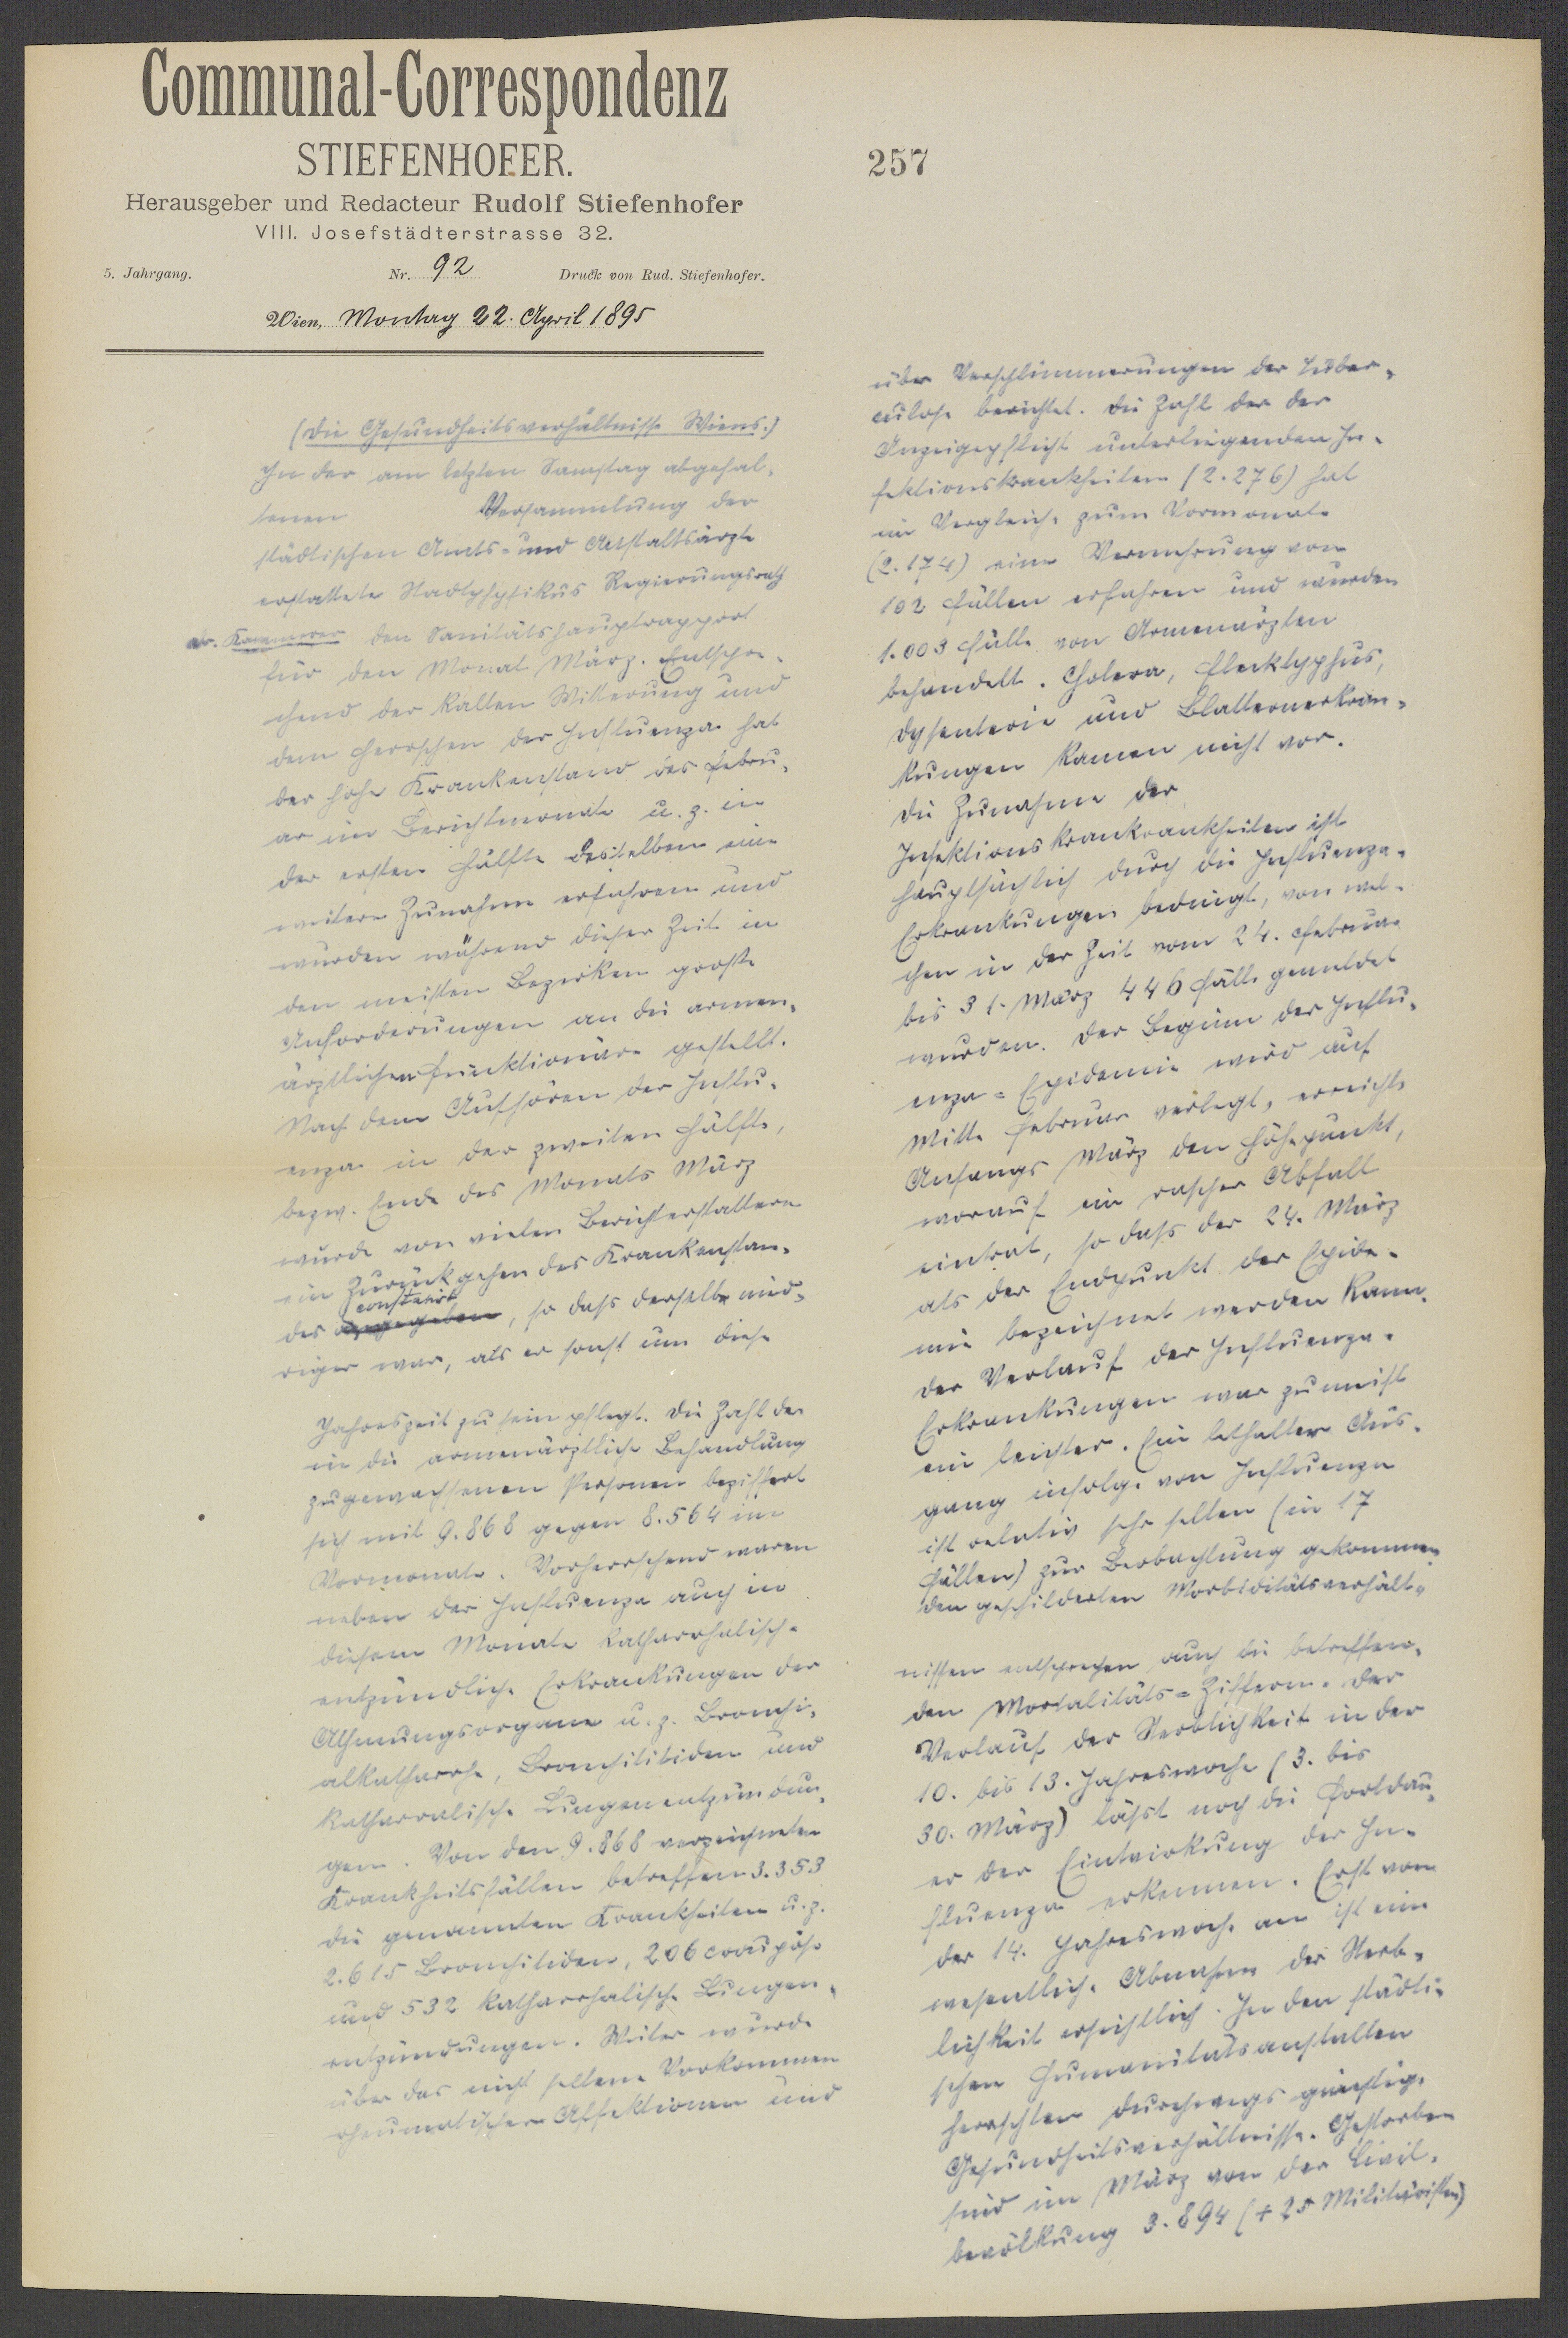 Communal-Correspondenz
STIEFENHOFER.
Herausgeber und Redacteur Rudolf Stiefenhofer
VIII. Josefstädterstrasse 32.
5. Jahrgang. Nr. 92 Druck von Rud. Stiefenhofer.
Wien, Montag 22. April 1895
257
(Die Gesundheitsverhältnisse Wiens.)
In der am letzten Samstag abgehal-
tenen Versammlung der
städtischen Amts- und Anstaltsärzte
erstattete Stadtphysikus Regierungsrath
Dr. Kammerer den Sanitätshauptrapport
für den Monat März. Entspre-
chend der kalten Witterung und
dem Herrschen der Influenza hat
der hohe Krankenstand des Febru-
ar im Berichtmonate u. z. in
der ersten Hälfte desselben eine
weitere Zunahme erfahren und
wurden während dieser Zeit in
den meisten Bezirken große
Anforderungen an die armen-
ärztlichen Funktionäre gestellt.
Nach dem Aufhören der Influ-
enza in der zweiten Hälfte,
bezw. Ende des Monats März
wurde von vielen Berichterstattern
ein Zurückgehen des Krankenstan-
constatirt
des angegeben, so daß derselbe nied-
riger war, als er sonst um diese
Jahreszeit zu sein pflegt. Die Zahl der
in die armenärztliche Behandlung
zugewachsenen Personen beziffert
sich mit 9.868 gegen 8.564 im
Vormonate. Vorherrschend waren
neben der Influenza auch in
diesem Monate katharrhalisch-
entzündliche Erkrankungen der
Athmungsorgane u. z. Bronchi-
alkatharrhe, Bronchitiden und
katharralische Lungenentzündun-
gen. Von den 9.868 verzeichneten
Krankheitsfällen betreffen 3.353
die genannten Krankheiten u. z.
2.615 Bronchitiden, 206 croupöse
und 532 katharrhalische Lungen-
entzündungen. Weiter wurde
über das nicht seltene Vorkommen
rheumatischer Affektionen und
über Verschlimmerungen der Tuber-
culose berichtet. Die Zahl der der
Anzeigepflicht unterliegenden In-
fektionskrankheiten (2.276) hat
im Vergleiche zum Vormonate
(2.174) eine Vermehrung von
102 Fällen erfahren und wurden
1.003 Fälle von Armenärzten
behandelt. Cholera, Flecktyphus,
Dysenterie und Blatternerkran-
kungen kamen nicht vor.
Die Zunahme der
Infektionskrankrankheiten ist
hauptsächlich durch die Influenza-
Erkrankungen bedingt, von wel-
chen in der Zeit vom 24. Februar
bis 31. März 446 Fälle gemeldet
wurden. Der Beginn der Influ-
enza-Epidemie wird auf
Mitte Februar verlegt, erreichte
Anfangs März den Höhepunkt,
worauf ein rascher Abfall
eintrat, so daß der 24. März
als der Endpunkt der Epide-
mie bezeichnet werden kann.
Der Verlauf der Influenza-
Erkrankungen war zumeist
ein leichter. Ein lethaler Aus-
gang infolge von Influenza
ist relativ sehr selten (in 17
Fällen) zur Beobachtung gekommen
Den geschilderten Morbiditätsverhält-
nissen entsprechen auch die betreffen-
den Mortalitäts-Ziffern. Der
Verlauf der Sterblichkeit in der
10. bis 13. Jahreswoche (3. bis
30. März) läßt noch die Fortdau-
er der Einwirkung der In-
fluenza erkennen. Erst von
der 14. Jahreswoche an ist eine
wesentliche Abnahme der Sterb-
lichkeit ersichtlich. In den städti-
schen Humanitätsanstalten
herrschten durchwegs günstige
Gesundheitsverhältnisse. Gestorben
sind im März von der Civil-
bevölkung 3.894 (+ 25 Militäristen)